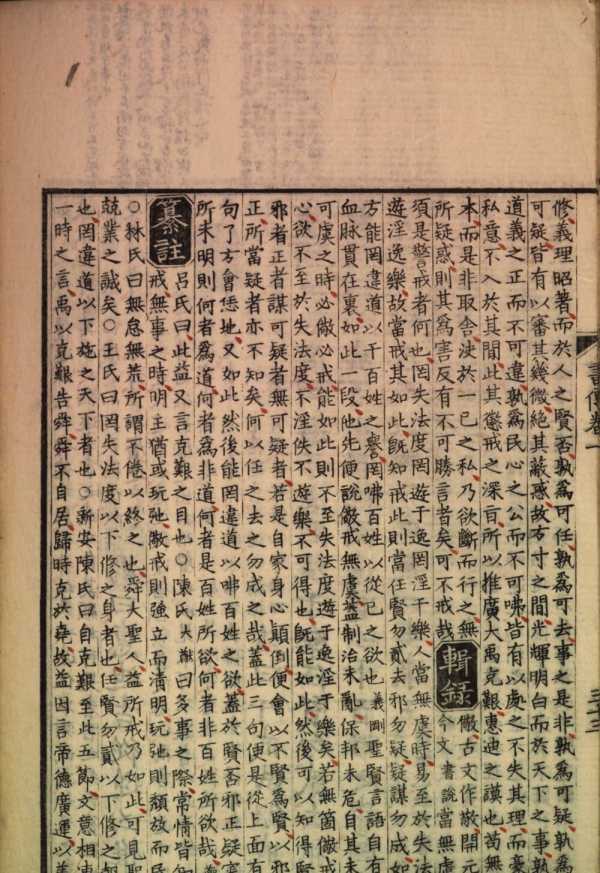 修義理昭著而於人之賢否孰爲可任孰爲可去事之是非孰爲可疑孰爲
可疑皆有以審其幾微絕其蔽惑故方寸之間光輝明白而於天下之事孰
道義之正而不可違孰爲民心之公而不可咈皆有以處之不失其理而毫
私意不入於其間此其懲戒之深㫖所以推廣大禹克艱惠迪之謨也苟無
本而是非取舍決於一已之私乃欲斷而行之無
所疑惑則其爲害反有不可勝言者矣可不戒哉
輯錄
儆古文作敬開元
今文 書説當無虞
須是警戒者何也罔失法度罔遊于逸罔淫于樂人當無虞時易至於失法
遊淫逸樂故當戒其如此旣知戒此則當任賢勿貳去邪勿疑疑謀勿成如
方能罔違道以干百姓之譽罔咈百姓以從已之欲也 義剛 聖賢言語自有
血脉貫在裏如此一段他先便說儆戒無虞蓋制治未亂保邦未危自其未
可虞之時必儆必戒能如此則不至失法度遊于逸淫于樂矣若無箇儆戒
心欲不至於失法度不淫佚不遊樂不可得也旣能如此然後可以知得賢
邪者正者謀可疑者無可疑者若是自家身心顛倒便會以不賢爲賢以邪
正所當疑者亦不知矣何以任之去之勿成之哉蓋此三句便是從上面有
句了方會恁地又如此然後能罔違道以咈百姓之欲蓋於賢否邪正疑審
所未明則何者爲道何者爲非道何者是百姓所欲何者非百姓所欲哉
纂註
呂氏曰此益又言克艱之目也○陳氏大猷曰多事之際常情皆知
戒無事之時明主猶或玩弛儆戒則強立而清明玩弛則頽放而
○林氏曰無怠無荒所謂不倦以終之也舜大聖人益所戒乃如此可見聖
兢業之誠矣○王氏曰罔失法度以下修之身者也任賢勿貳以下修之
也罔違道以下施之天下者也○新安陳氏曰自克艱至此五節文意相
一時之言禹以克艱告舜舜不自居歸時克於堯故益因言帝德廣運以
書傳卷一
三十三